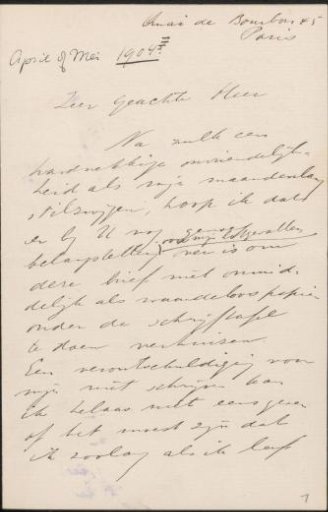 Quai de Bourbon 45
Paris
April of Mei 1904
Zeer geachte Heer
Na zulk een
hardnekkige onvriendelijk-
heid als mijn maandenlang
stilzwijgen, hoop ik dat
er bij U nog genoeg
belangstelling voor mijn lotgevallen over is om
deze brief niet onmid-
delijk als waardeloos papier
onder de schrijftafel
te doen verhuizen
Een verontschuldiging voor
mijn niet schrijven kan
ik helaas niet eens geven
of het moest zijn dat
ik zoolang als ik leef
1